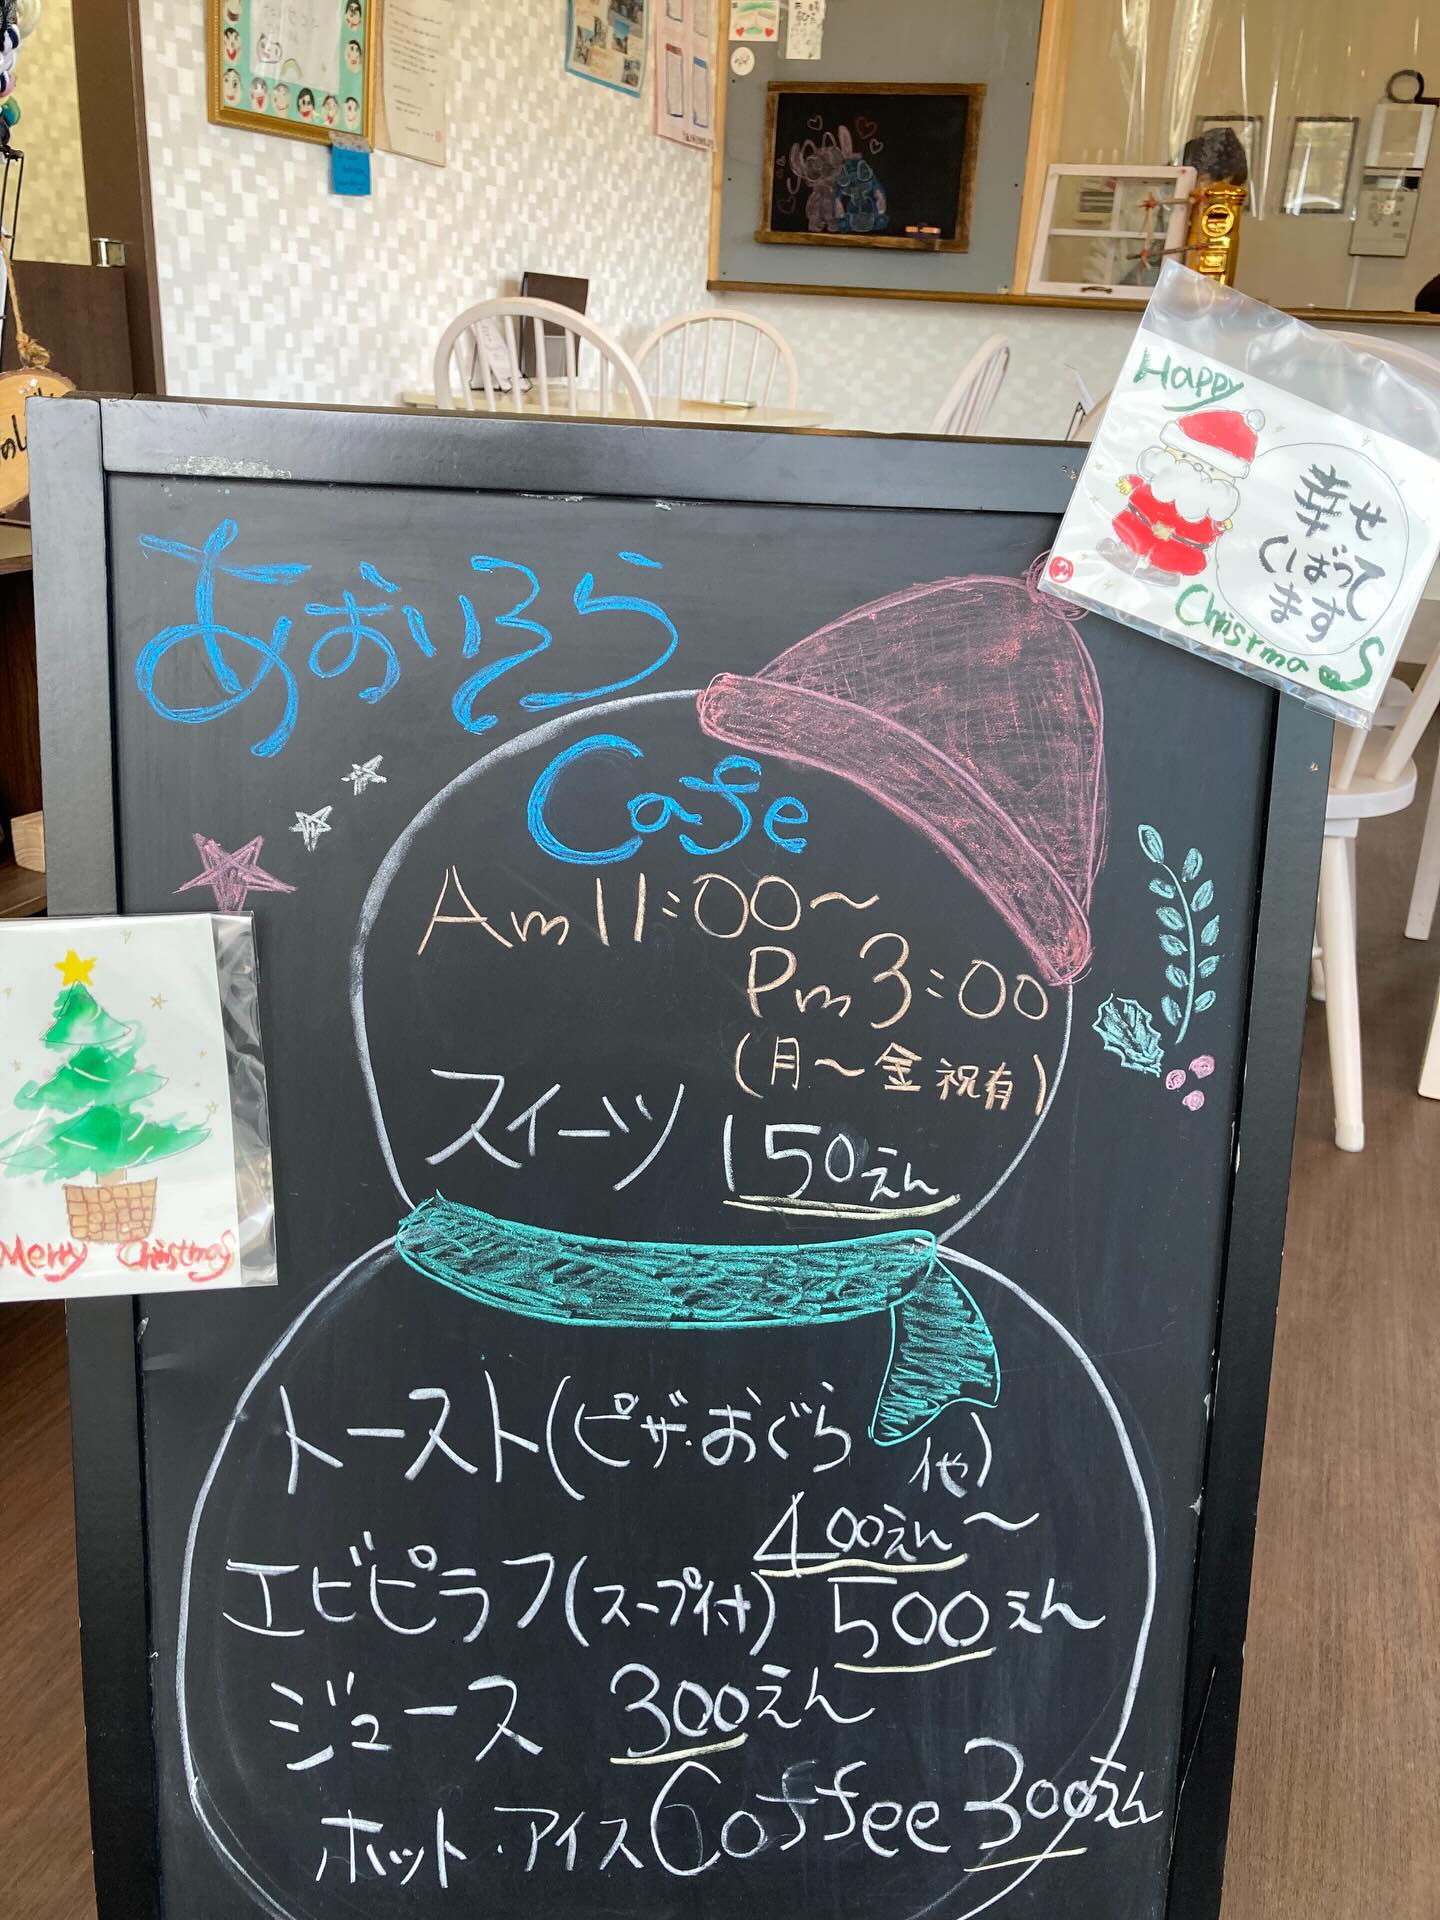 あおいそら
Cafe
Am11:00〜
Pm3:00
(月〜金 祝有)
スイーツ 150えん
トースト(ピザ・おぐら 他)
400えん〜
エビピラフ(スープ付) 500えん
ジュース 300えん
ホット・アイスCoffee 300えん
Happy
幸せ
くばって
ます
Christmas
Merry Christmas